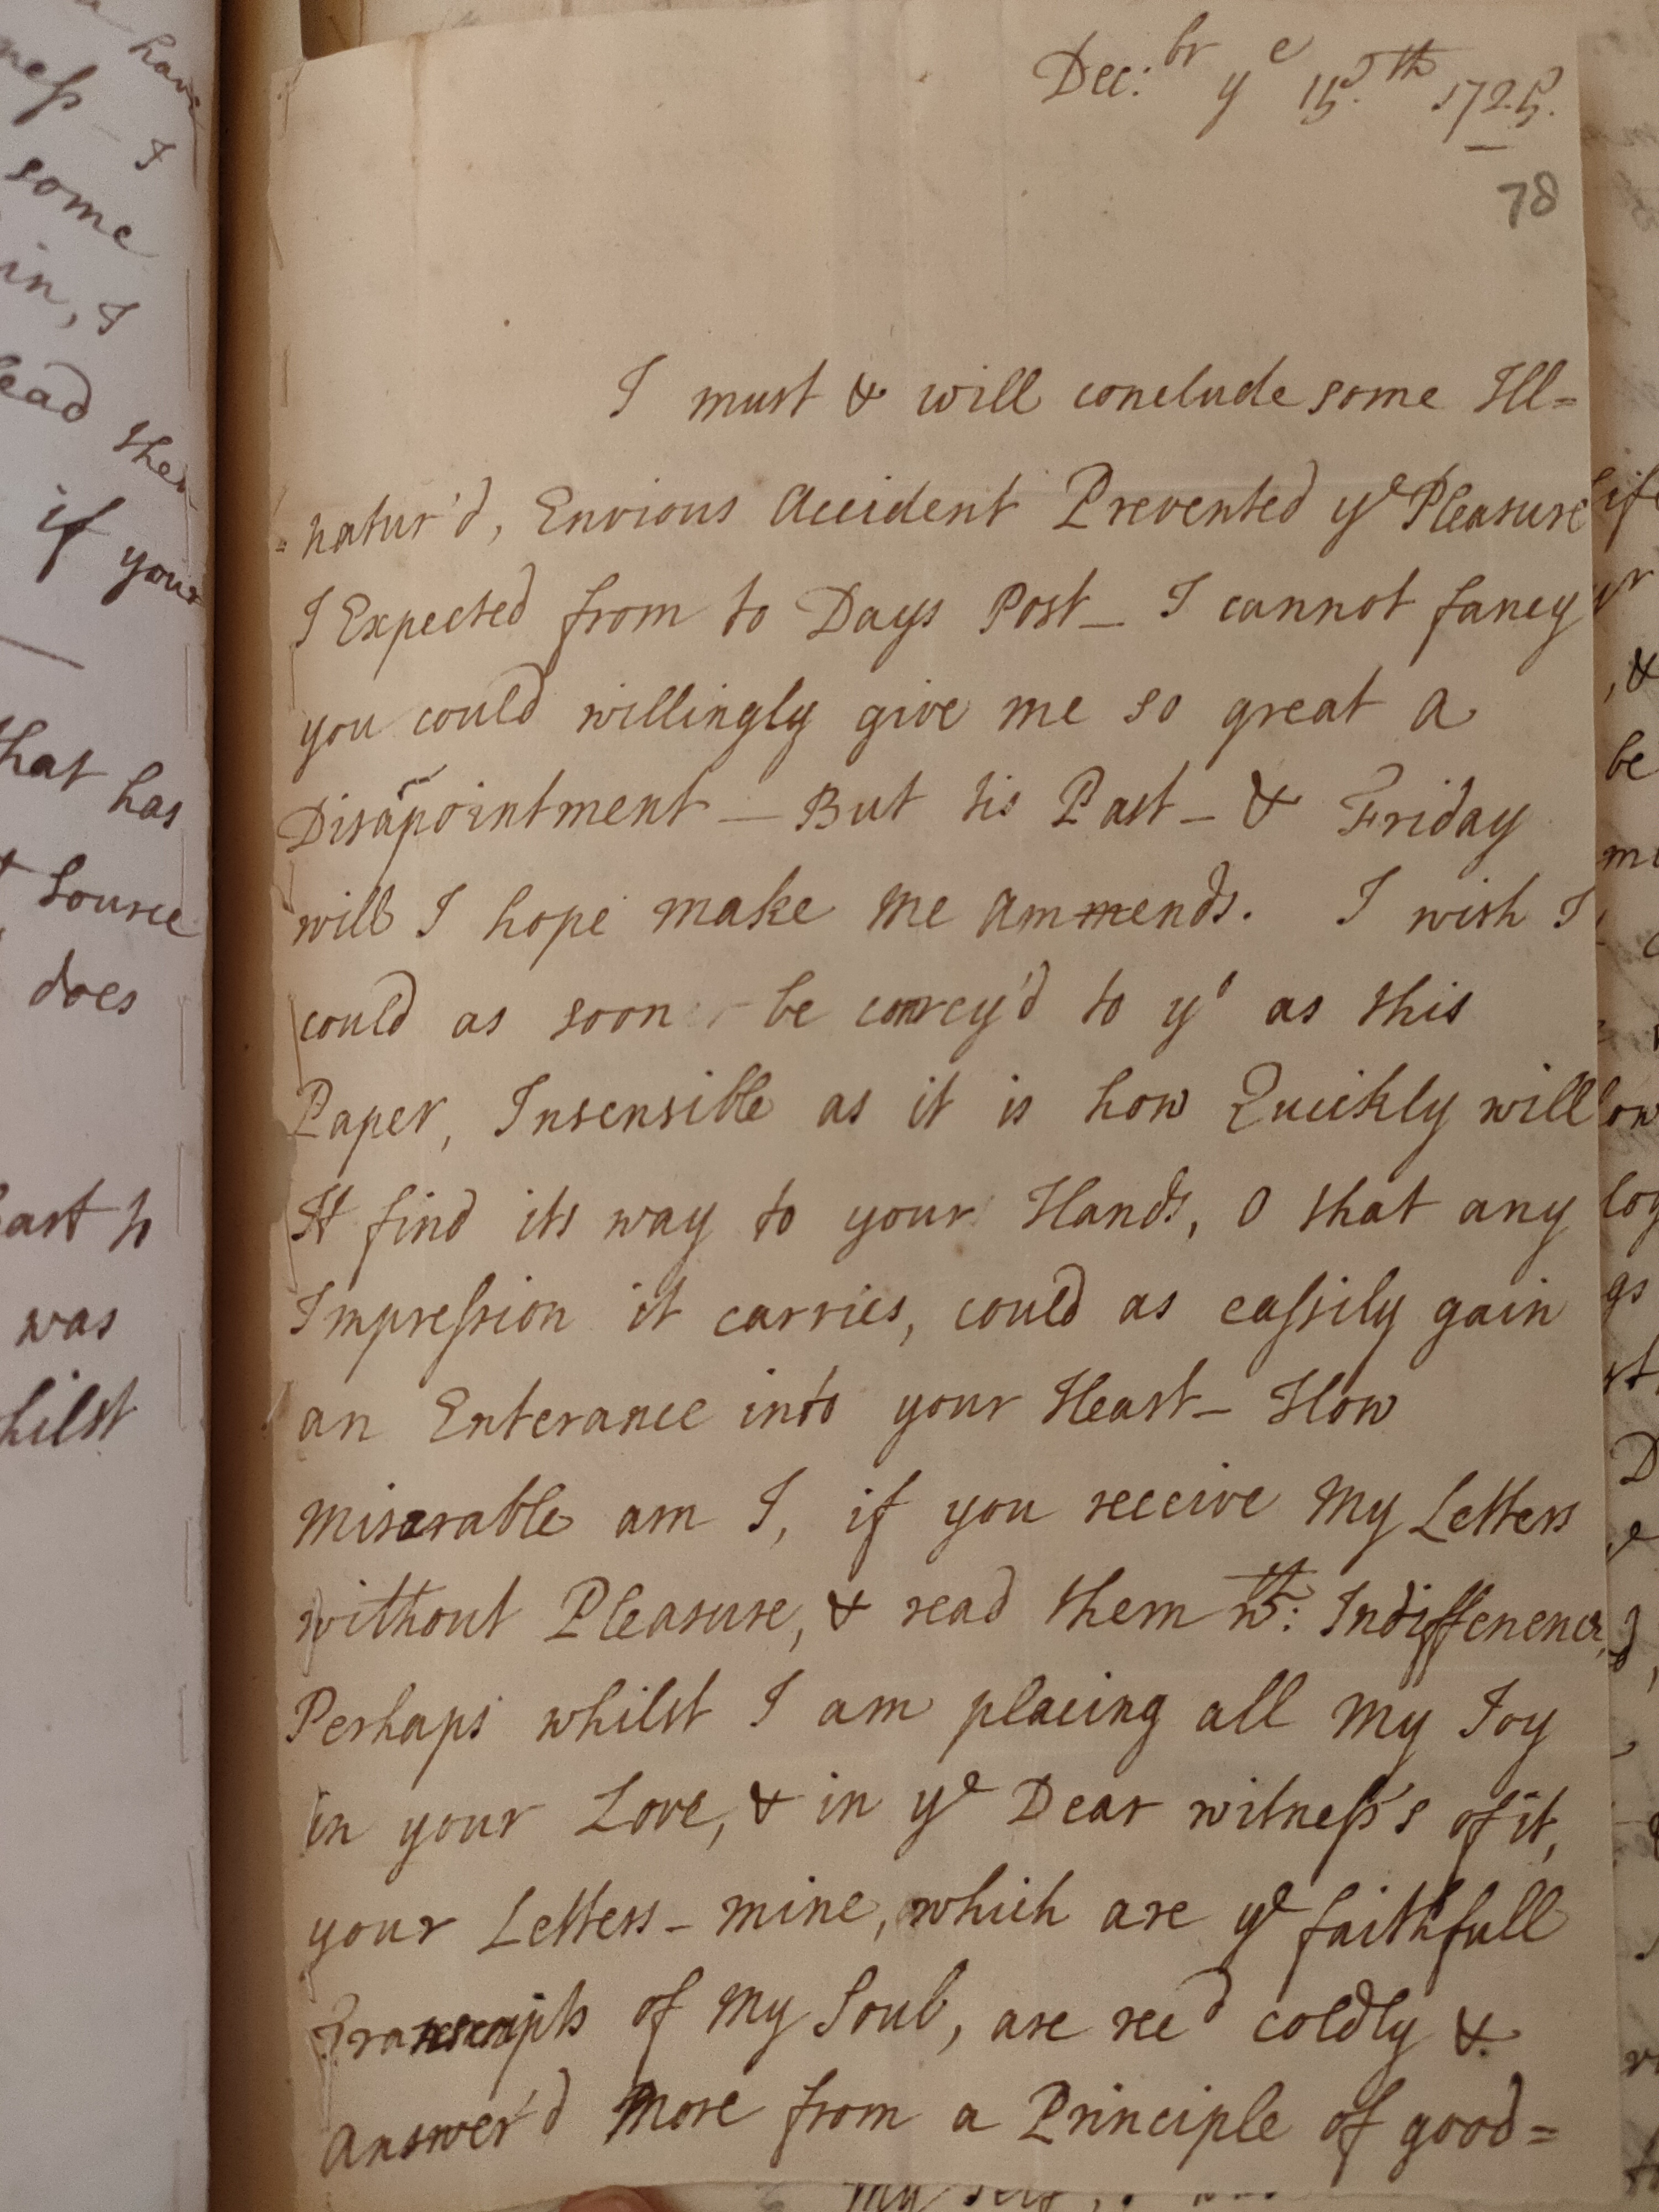 Dec:br ye 15.th 1725.
78
I must & will conclude some Ill=
=natur'd, Envious Accident Prevented ye Pleasure
I Expected from to Days Post_ I cannot fancy
you could willingly give me so great a
Disapointment _ But tis Past _ & Friday
will I hope make me ammends. I wish I
could as soon be convey'd to yo as this
Paper, Insensible as it is how Quickly will
It find its way to your Hands, O that any
Impression it carries, could as eassily gain
an Enterance into your Heart _ How
miserable am I, if you receive My Letters
without Pleasure, & read them wth: Indifference,
Perhaps whilst I am placing all my Joy
in your Love, & in ye Dear witness's of it,
your Letters _ mine, which are ye faithfull
Transcripts of My Soul, are recd coldly &
Answer'd More from a Principle of good=
have
ness _ I
some
in, I
ead them
if your
that has
source
does
was
whilst
be
my self,